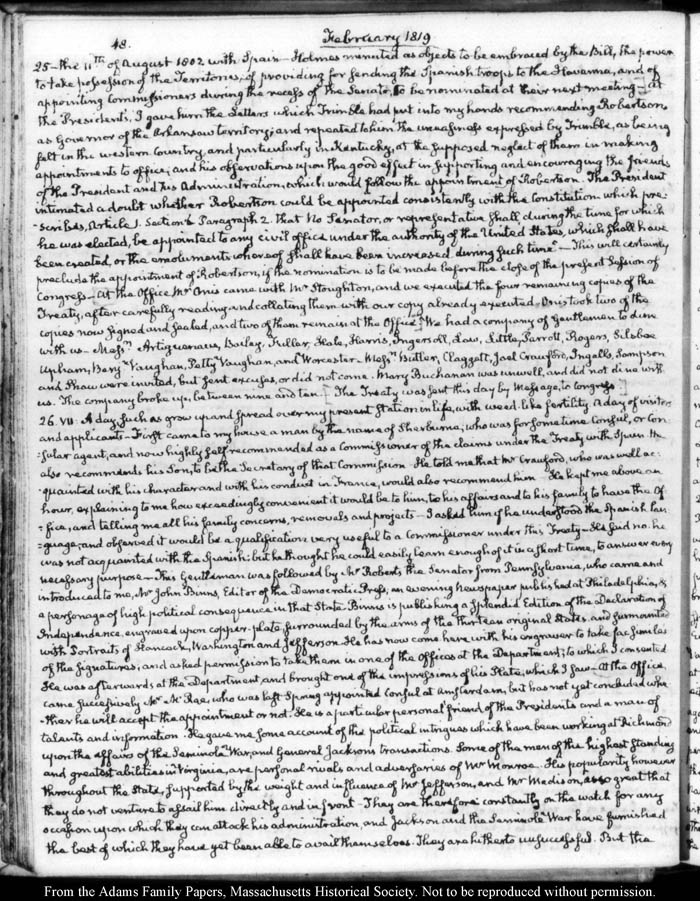 48. February 1819
25 – the 11th of August 1802 with Spain – Holmes minuted as objects to be embraced by the Bill, the power
to take possession of the Territories, of providing for sending the Spanish troops to the Havanna, and of
appointing Commissioners during the recess of the Senate, to be nominated at their next meeting – At
the President's, I gave him the Letters which Trimble had put into my hands recommending Robertson,
as Governor of the Arkansaw territory; and repeated to him the uneasiness expressed by Trimble, as being
felt in the western Country, and particularly in Kentucky, at the supposed neglect of them in making
appointments to office; and his observations upon the good effect in supporting and encouraging the friends
of the President and his Administration, which would follow the appointment of Robertson. The President
intimated a doubt whether Robertson could be appointed consistently with the Constitution which pre-
-scribes, Article 1. Section 6 Paragraph 2. that No Senator, or representative shall during the time for which
he was elected, be appointed to any civil office under the authority of the United States, which shall have
been created, or the emoluments whereof shall have been increased during such time. – This will certainly
preclude the appointment of Robertson, if the nomination is to be made before the close of the present Session of
Congress – At the Office Mr Onis came with Mr Stoughton, and we executed the four remaining copies of the
Treaty, after carefully reading and collating them with our copy already executed. Onis took two of the
copies now signed and sealed, and two of them remain at the Office. We had a company of Gentlemen to dine
with us – Messrs Artiguenave, Bailey, Fuller, Hale, Harris, Ingersoll, Law, Little, Parrott, Rogers, Silsbee
Upham, Benj. Vaughan, Petty Vaughan, and Worcester – Messrs Butler, Claggett, Joel Crawford, Ingalls, Sampson
and Shaw were invited, but sent excuses, or did not come. Mary Buchanan was unwell, and did not dine with
us. The company broke up, between nine and ten. [The Treaty was sent this day by Message, to Congress.]
26. VII. A day, such as grow up and spread over my present Station in life, with weed-like fertility. A day of visitors
and applicants – First came to my house a man by the name of Sherburne, who was for some time Consul, or Con-
-sular agent, and now highly self recommended as a Commissioner of the claims under the Treaty with Spain. He
also recommends his Son, to be the Secretary of that Commission. He told me that Mr Crawford, who was well ac-
-quainted with his character and with his conduct in France, would also recommend him. He kept me above an
hour, explaining to me how exceedingly convenient it would be to him, to his affairs and to his family to have the Of-
-fice, and telling me all his family concerns, removals and projects – I asked him if he understood the Spanish lan-
-guage, and observed it would be a qualification very useful to a Commissioner under this Treaty – He said no. he
was not acquainted with the Spanish: but he thought he could easily learn enough of it in a short time, to answer every
necessary purpose – This Gentleman was followed by Mr Roberts the Senator from Pennsylvania, who came and
introduced to me, Mr John Binns, Editor of the Democratic Press, an evening newspaper published at Philadelphia, &
a personage of high political consequence in that State. Binns is publishing a splendid Edition of the Declaration of
Independence, engraved upon copper-plate, surrounded by the arms of the thirteen original States, and surmounted
with Portraits of Hancock, Washington and Jefferson. He has now come here, with his engraver to take fac similes
of the signatures, and asked permission to take them in one of the Offices at the Department; to which I consented
He was afterwards at the Department, and brought one of the impressions of his Plate, which I saw – At the Office,
came successively Mr McRae, who was last Spring appointed Consul at Amsterdam, but has not yet concluded whe-
-ther he will accept the appointment or not. He is a particular personal friend of the President's and a man of
talents and information. He gave me some account of the political intrigues which have been working at Richmond
upon the affairs of the Seminole War, and General Jackson's transactions. Some of the men of the highest standing
and greatest abilities in Virginia, are personal rivals and adversaries of Mr Monroe. His popularity however
throughout the State, supported by the weight and influence of Mr Jefferson, and Mr Madison, is so great that
they do not venture to assail him directly and in front – They are therefore constantly on the watch for any
occasion upon which they can attack his administration, and Jackson and the Seminole War have furnished
the best of which they have yet been able to avail themselves. They are hitherto unsuccessful. But the
From the Adams Family Papers, Massachusetts Historical Society. Not to be reproduced without permission.